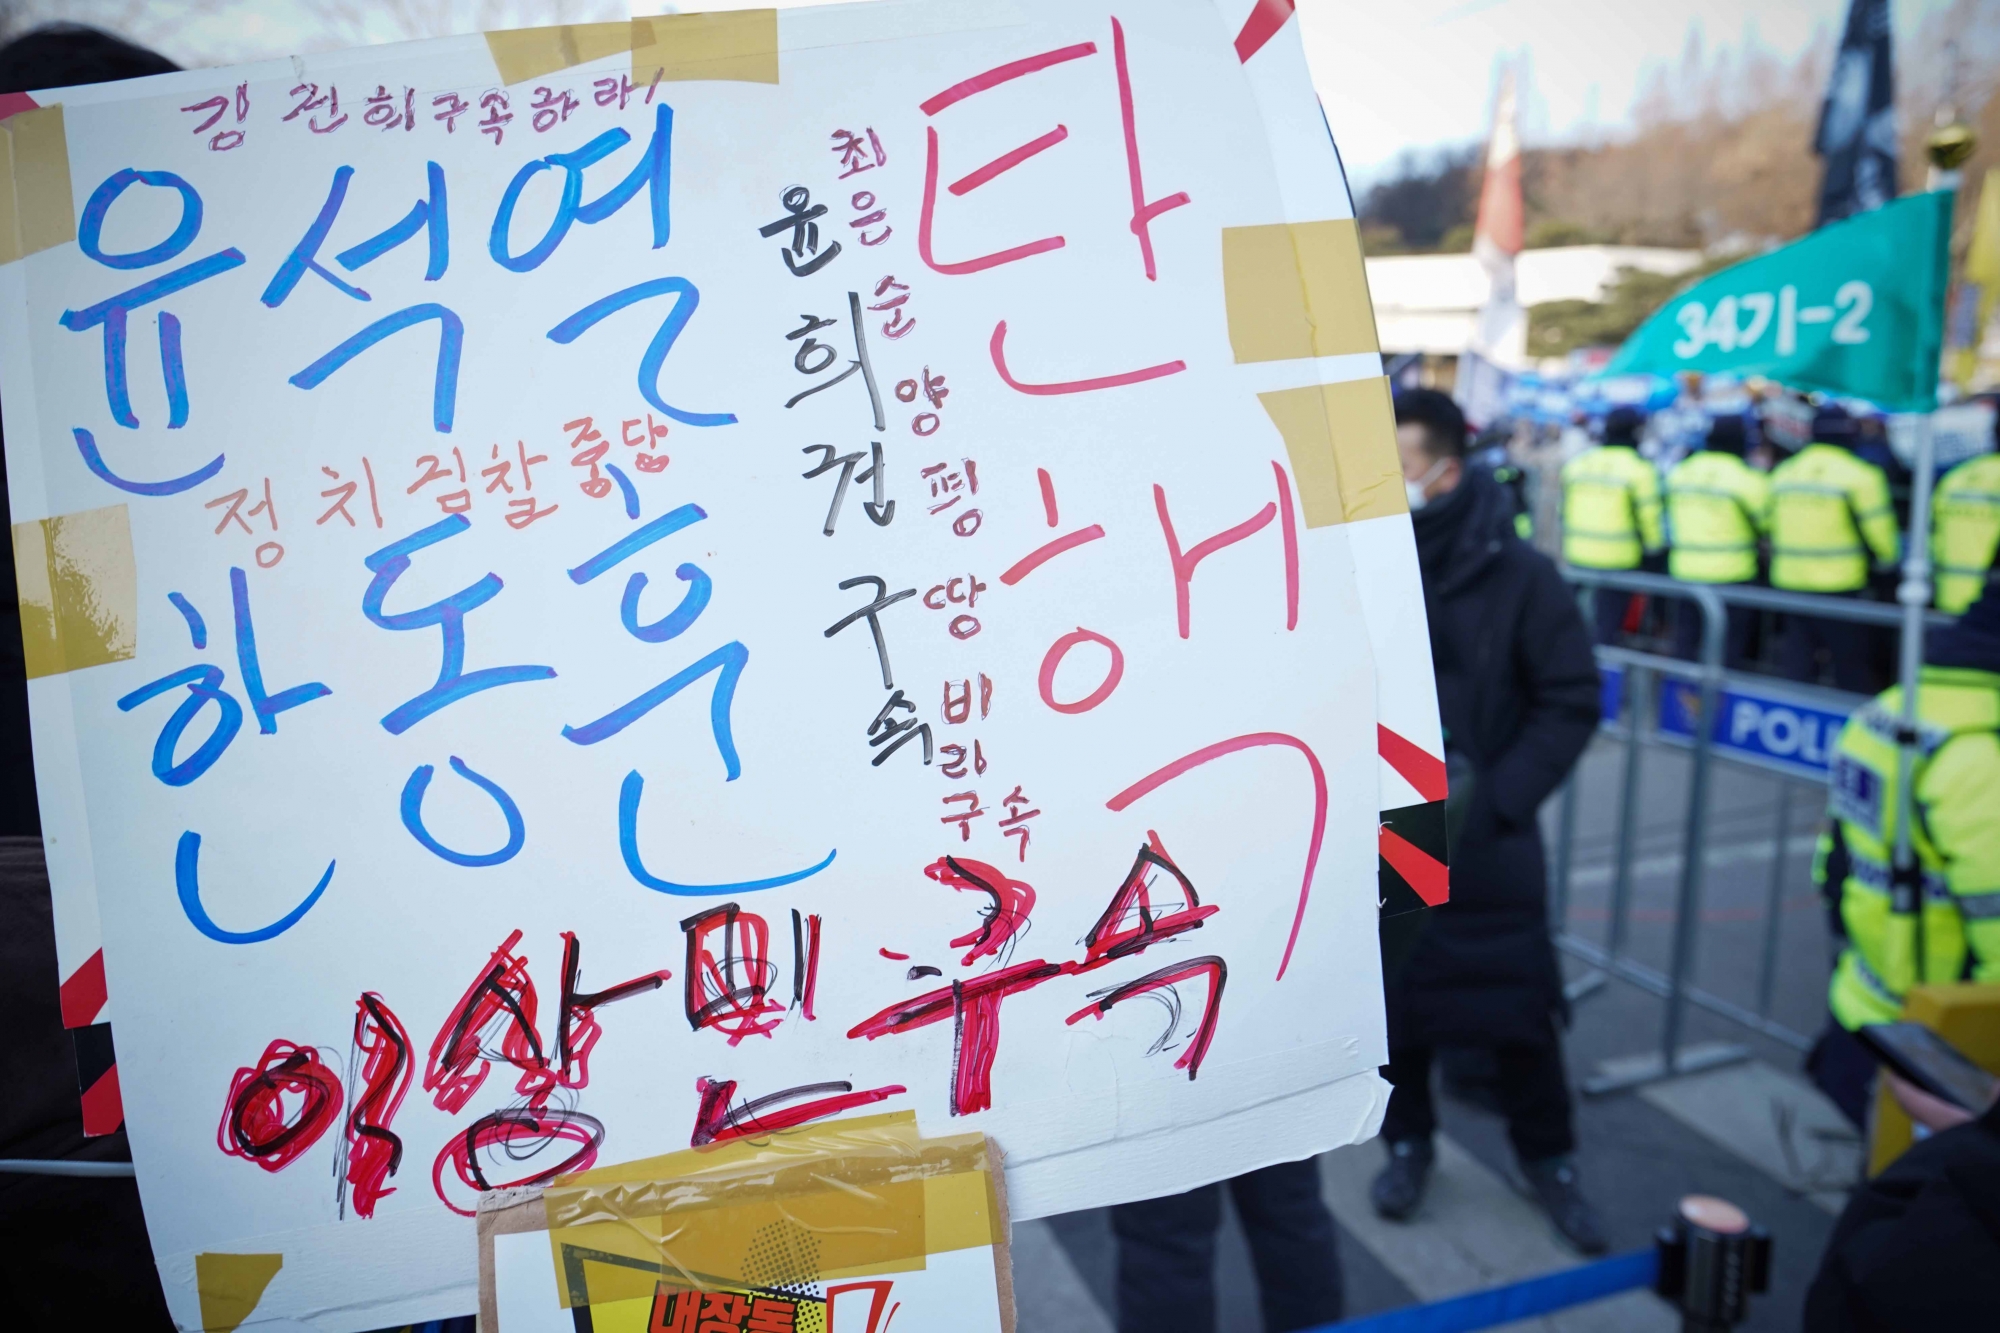 김건희구속하라!
윤석열
정치검찰중단
한동훈
윤희권구속
최은순양평땅비리구속
탄핵
이상민구속
대장동
34기-2
POLI